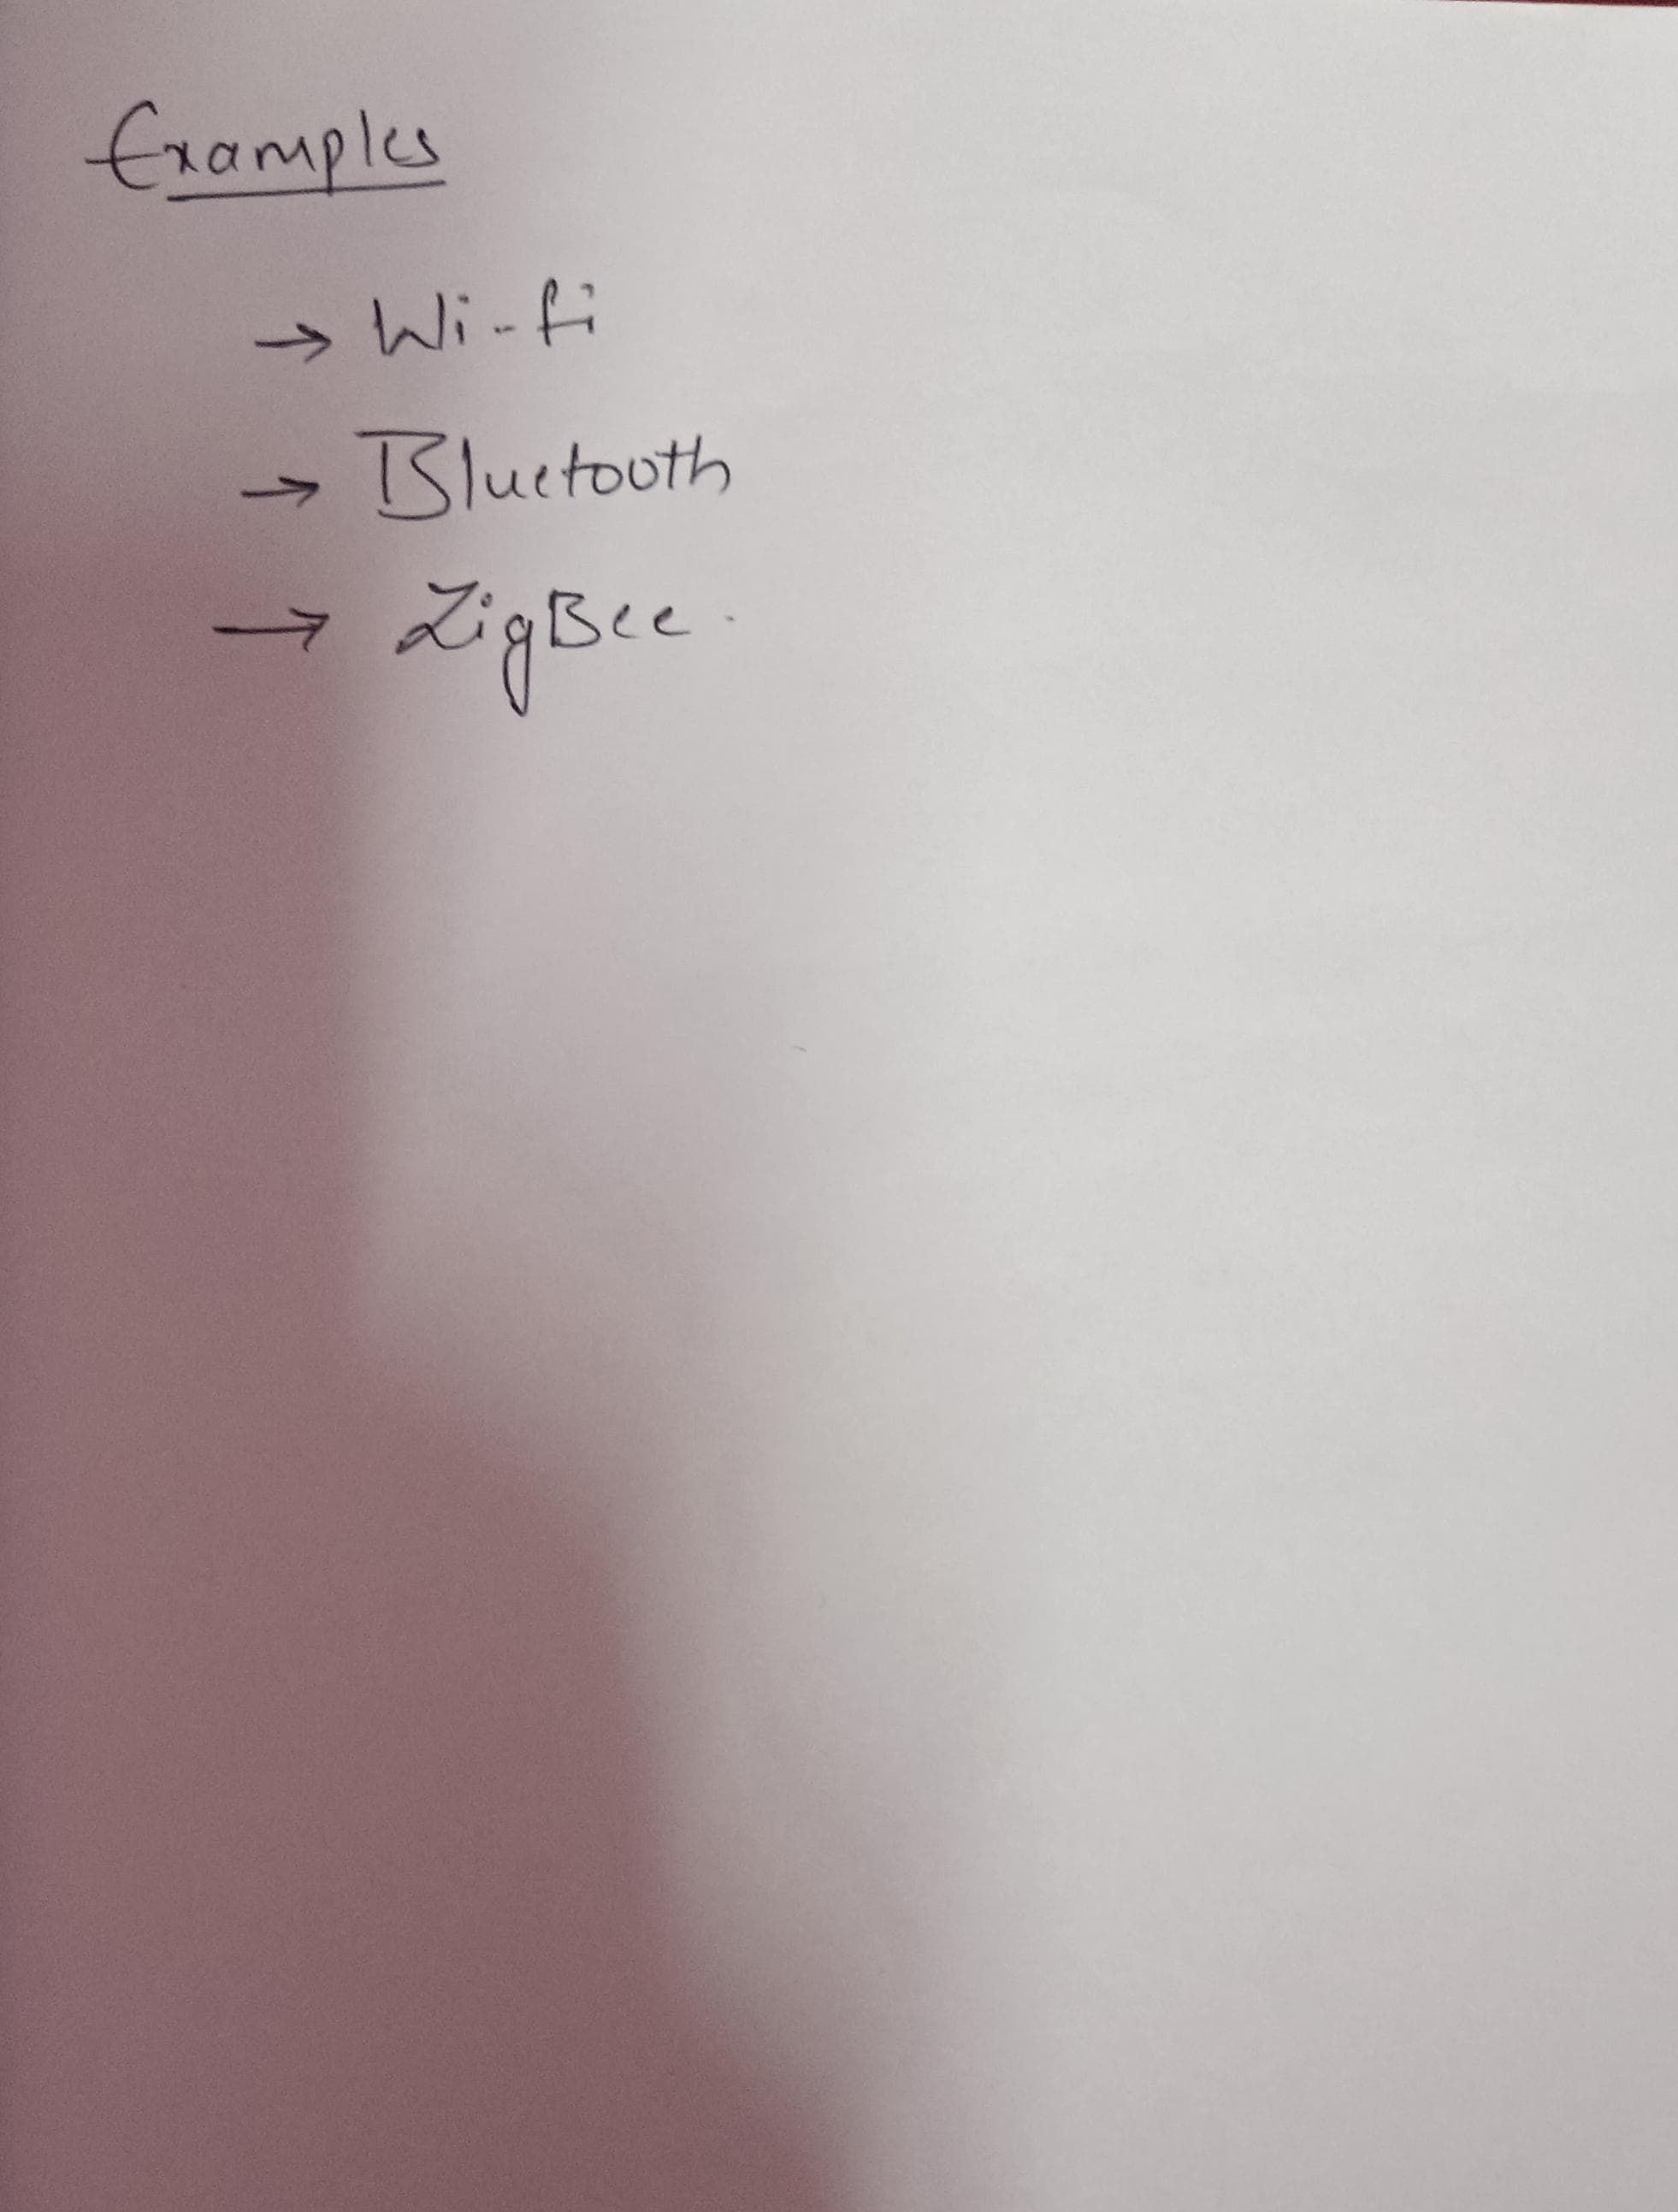 Examples
→ Wi-fi
→ Bluetooth
→ ZigBee.